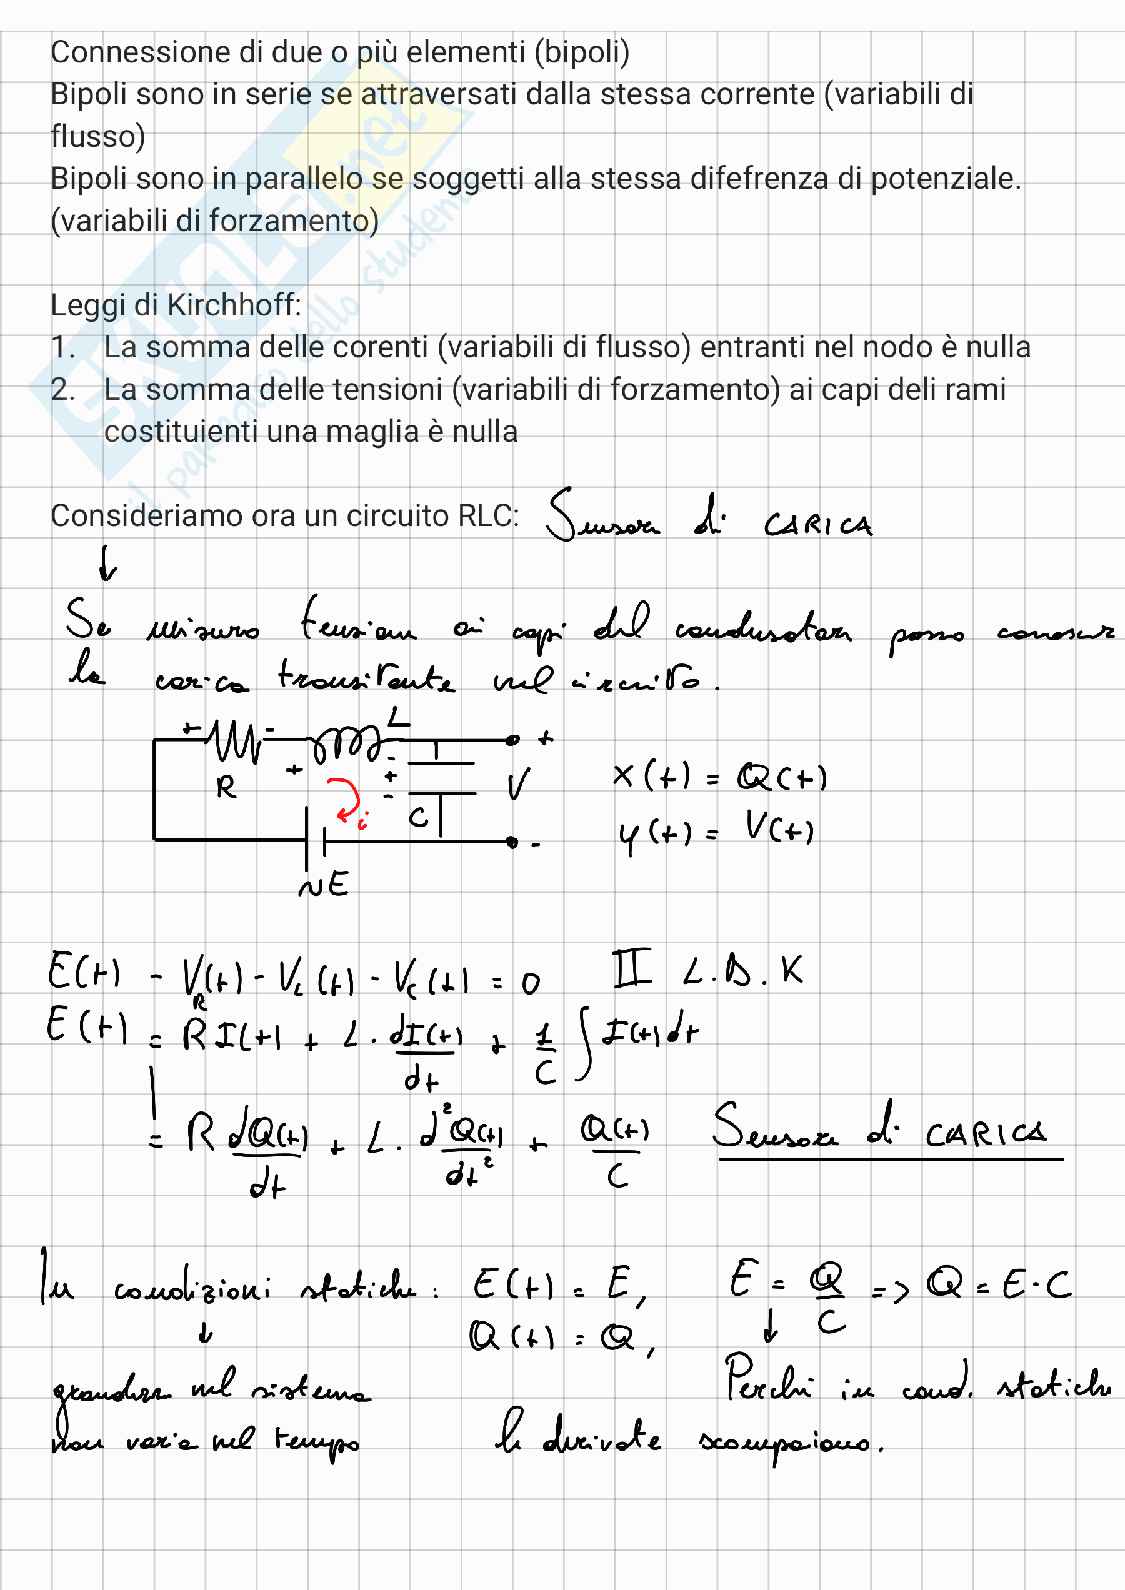 Connessione di due o più elementi (bipoli)
Bipoli sono in serie se attraversati dalla stessa corrente (variabili di
flusso)
Bipoli sono in parallelo se soggetti alla stessa difefrenza di potenziale.
(variabili di forzamento)
Leggi di Kirchhoff:
1. La somma delle corenti (variabili di flusso) entranti nel nodo è nulla
2. La somma delle tensioni (variabili di forzamento) ai capi deli rami
costituienti una maglia è nulla
Consideriamo ora un circuito RLC: Sensore di CARICA
↓
Se misuro tensione ai capi del condensatore posso conoscere
la carica transitante nel circuito.
+ - L
+ - + V -
R + - C i
x(t) = Q(t)
y(t) = V(t)
~E
E(t) - V_R(t) - V_L(t) - V_C(t) = 0 II L.D.K
E(t) = RI(t) + L · dI(t)/dt + 1/C ∫ I(t)dt
= R dQ(t)/dt + L · d²Q(t)/dt² + Q(t)/C Sensore di CARICA
In condizioni statiche: E(t) = E, E = Q/C => Q = E·C
↓ Q(t) = Q, ↓
grandezze nel sistema Perchè in cond. statiche
non varia nel tempo le derivate scompaiono.
SKUOLA.net
il paradiso dello studente